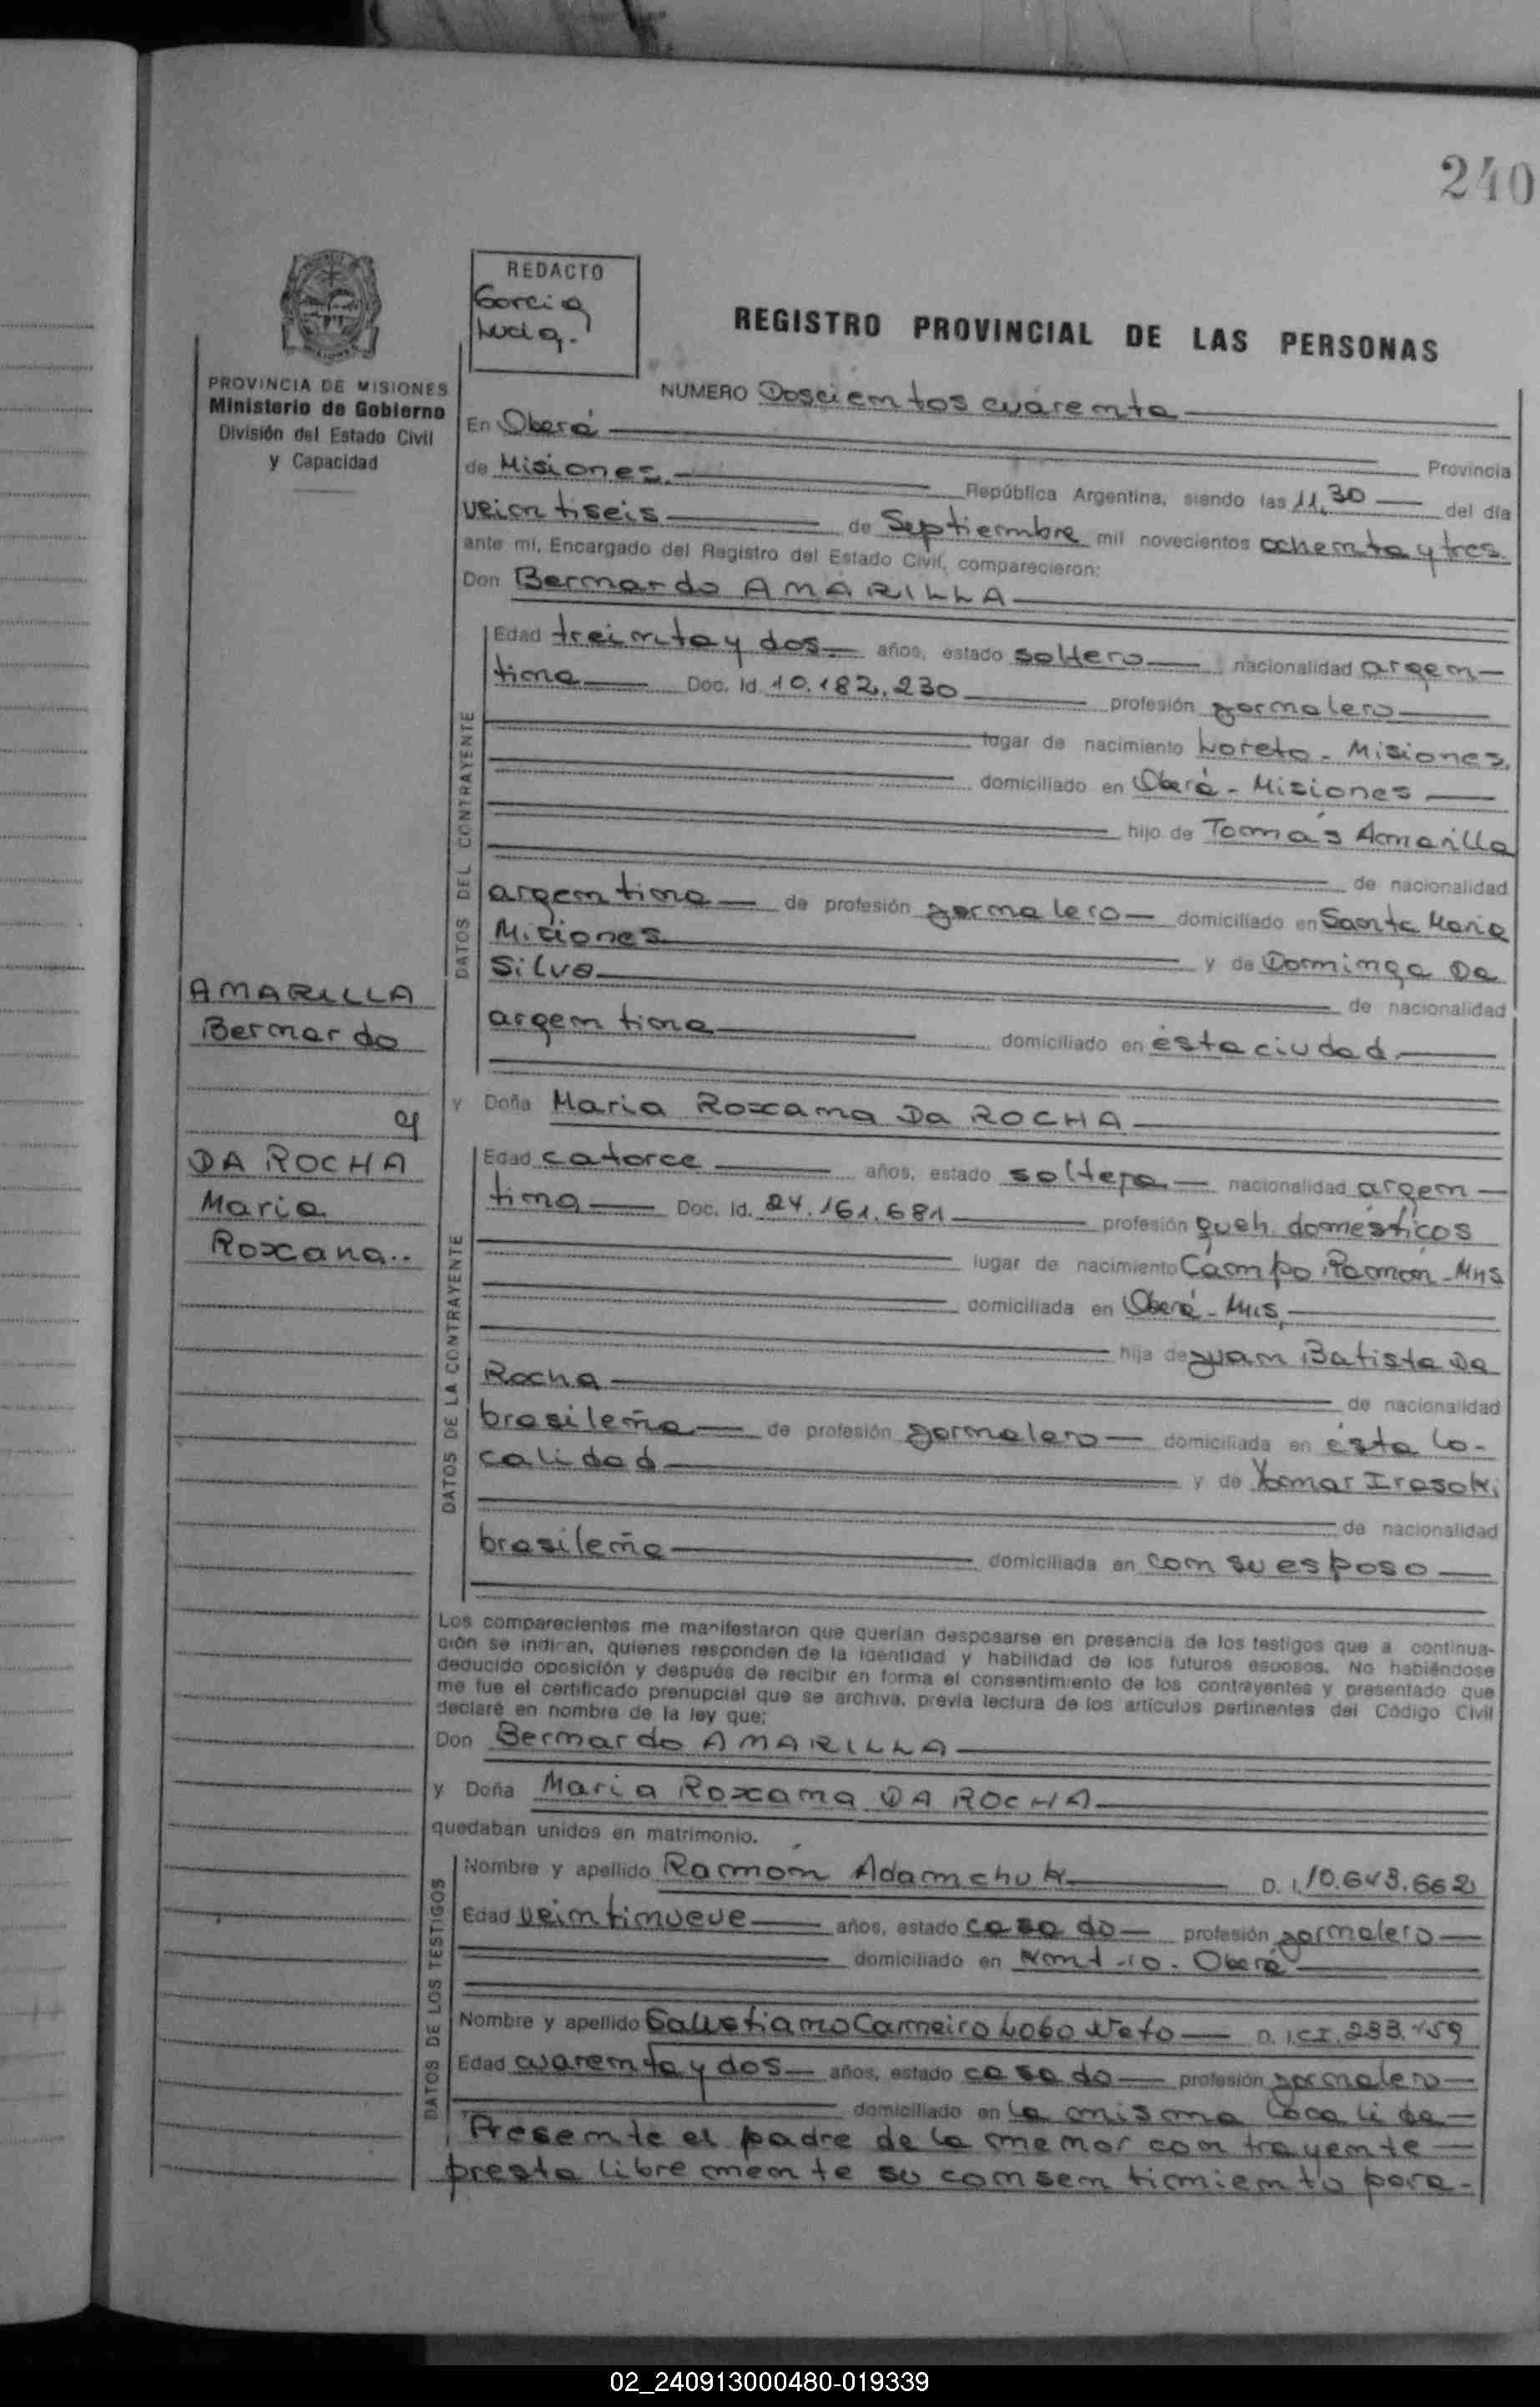 240
REDACTO
Garcia
Lucia.
REGISTRO PROVINCIAL DE LAS PERSONAS
PROVINCIA DE MISIONES
Ministerio de Gobierno
División del Estado Civil
y Capacidad
NUMERO Doscientos cuárenta
En Oberá
Provincia
de Misiones. República Argentina, siendo las 11,30 del día
veintiseis de Septiembre mil novecientos ochenta y tres.
ante mí, Encargado del Registro del Estado Civil, comparecieron:
Don Bernardo AMARILLA
DATOS DEL CONTRAYENTE
Edad treinta y dos años, estado soltero nacionalidad argen-
tina Doc. Id. 10.182.230 profesión jornalero
lugar de nacimiento Loreto - Misiones.
domiciliado en Oberá - Misiones
hijo de Tomás Amarilla
de nacionalidad
argentina de profesión jornalero domiciliado en Santa Maria
Misiones y de Dominga Da
Silva de nacionalidad
argentina domiciliado en ésta ciudad.
AMARILLA
Bernardo
y
DA ROCHA
Maria
Roxana..
y Doña Maria Roxana Da ROCHA
DATOS DE LA CONTRAYENTE
Edad catorce años, estado soltera nacionalidad argen-
tina Doc. Id. 24.161.681 profesión queh. domésticos
lugar de nacimiento Campo Ramón - Mns
domiciliada en Oberá - Mns,
hija de Juan Batista Da
Rocha de nacionalidad
brasileña de profesión jornalero domiciliada en ésta lo-
calidad y de Yomar Irasoki
de nacionalidad
brasileña domiciliada en con su esposo
Los comparecientes me manifestaron que querían desposarse en presencia de los testigos que a continua-
ción se indican, quienes responden de la identidad y habilidad de los futuros esposos. No habiéndose
deducido oposición y después de recibir en forma el consentimiento de los contrayentes y presentado que
me fue el certificado prenupcial que se archiva, previa lectura de los artículos pertinentes del Código Civil
declaré en nombre de la ley que:
Don Bernardo AMARILLA
y Doña Maria Roxana DA ROCHA
quedaban unidos en matrimonio.
DATOS DE LOS TESTIGOS
Nombre y apellido Ramón Adamchuk D. I. 10.643.662
Edad veintinueve años, estado casado profesión jornalero
domiciliado en Oberá
Nombre y apellido Salustiano Carneiro Lobo Neto D. I. CI. 233.159
Edad cuarenta y dos años, estado casado profesión jornalero
domiciliado en la misma localida
Presente el padre de la menor contrayente
presta libremente su consentimiento para-
02_240913000480-019339